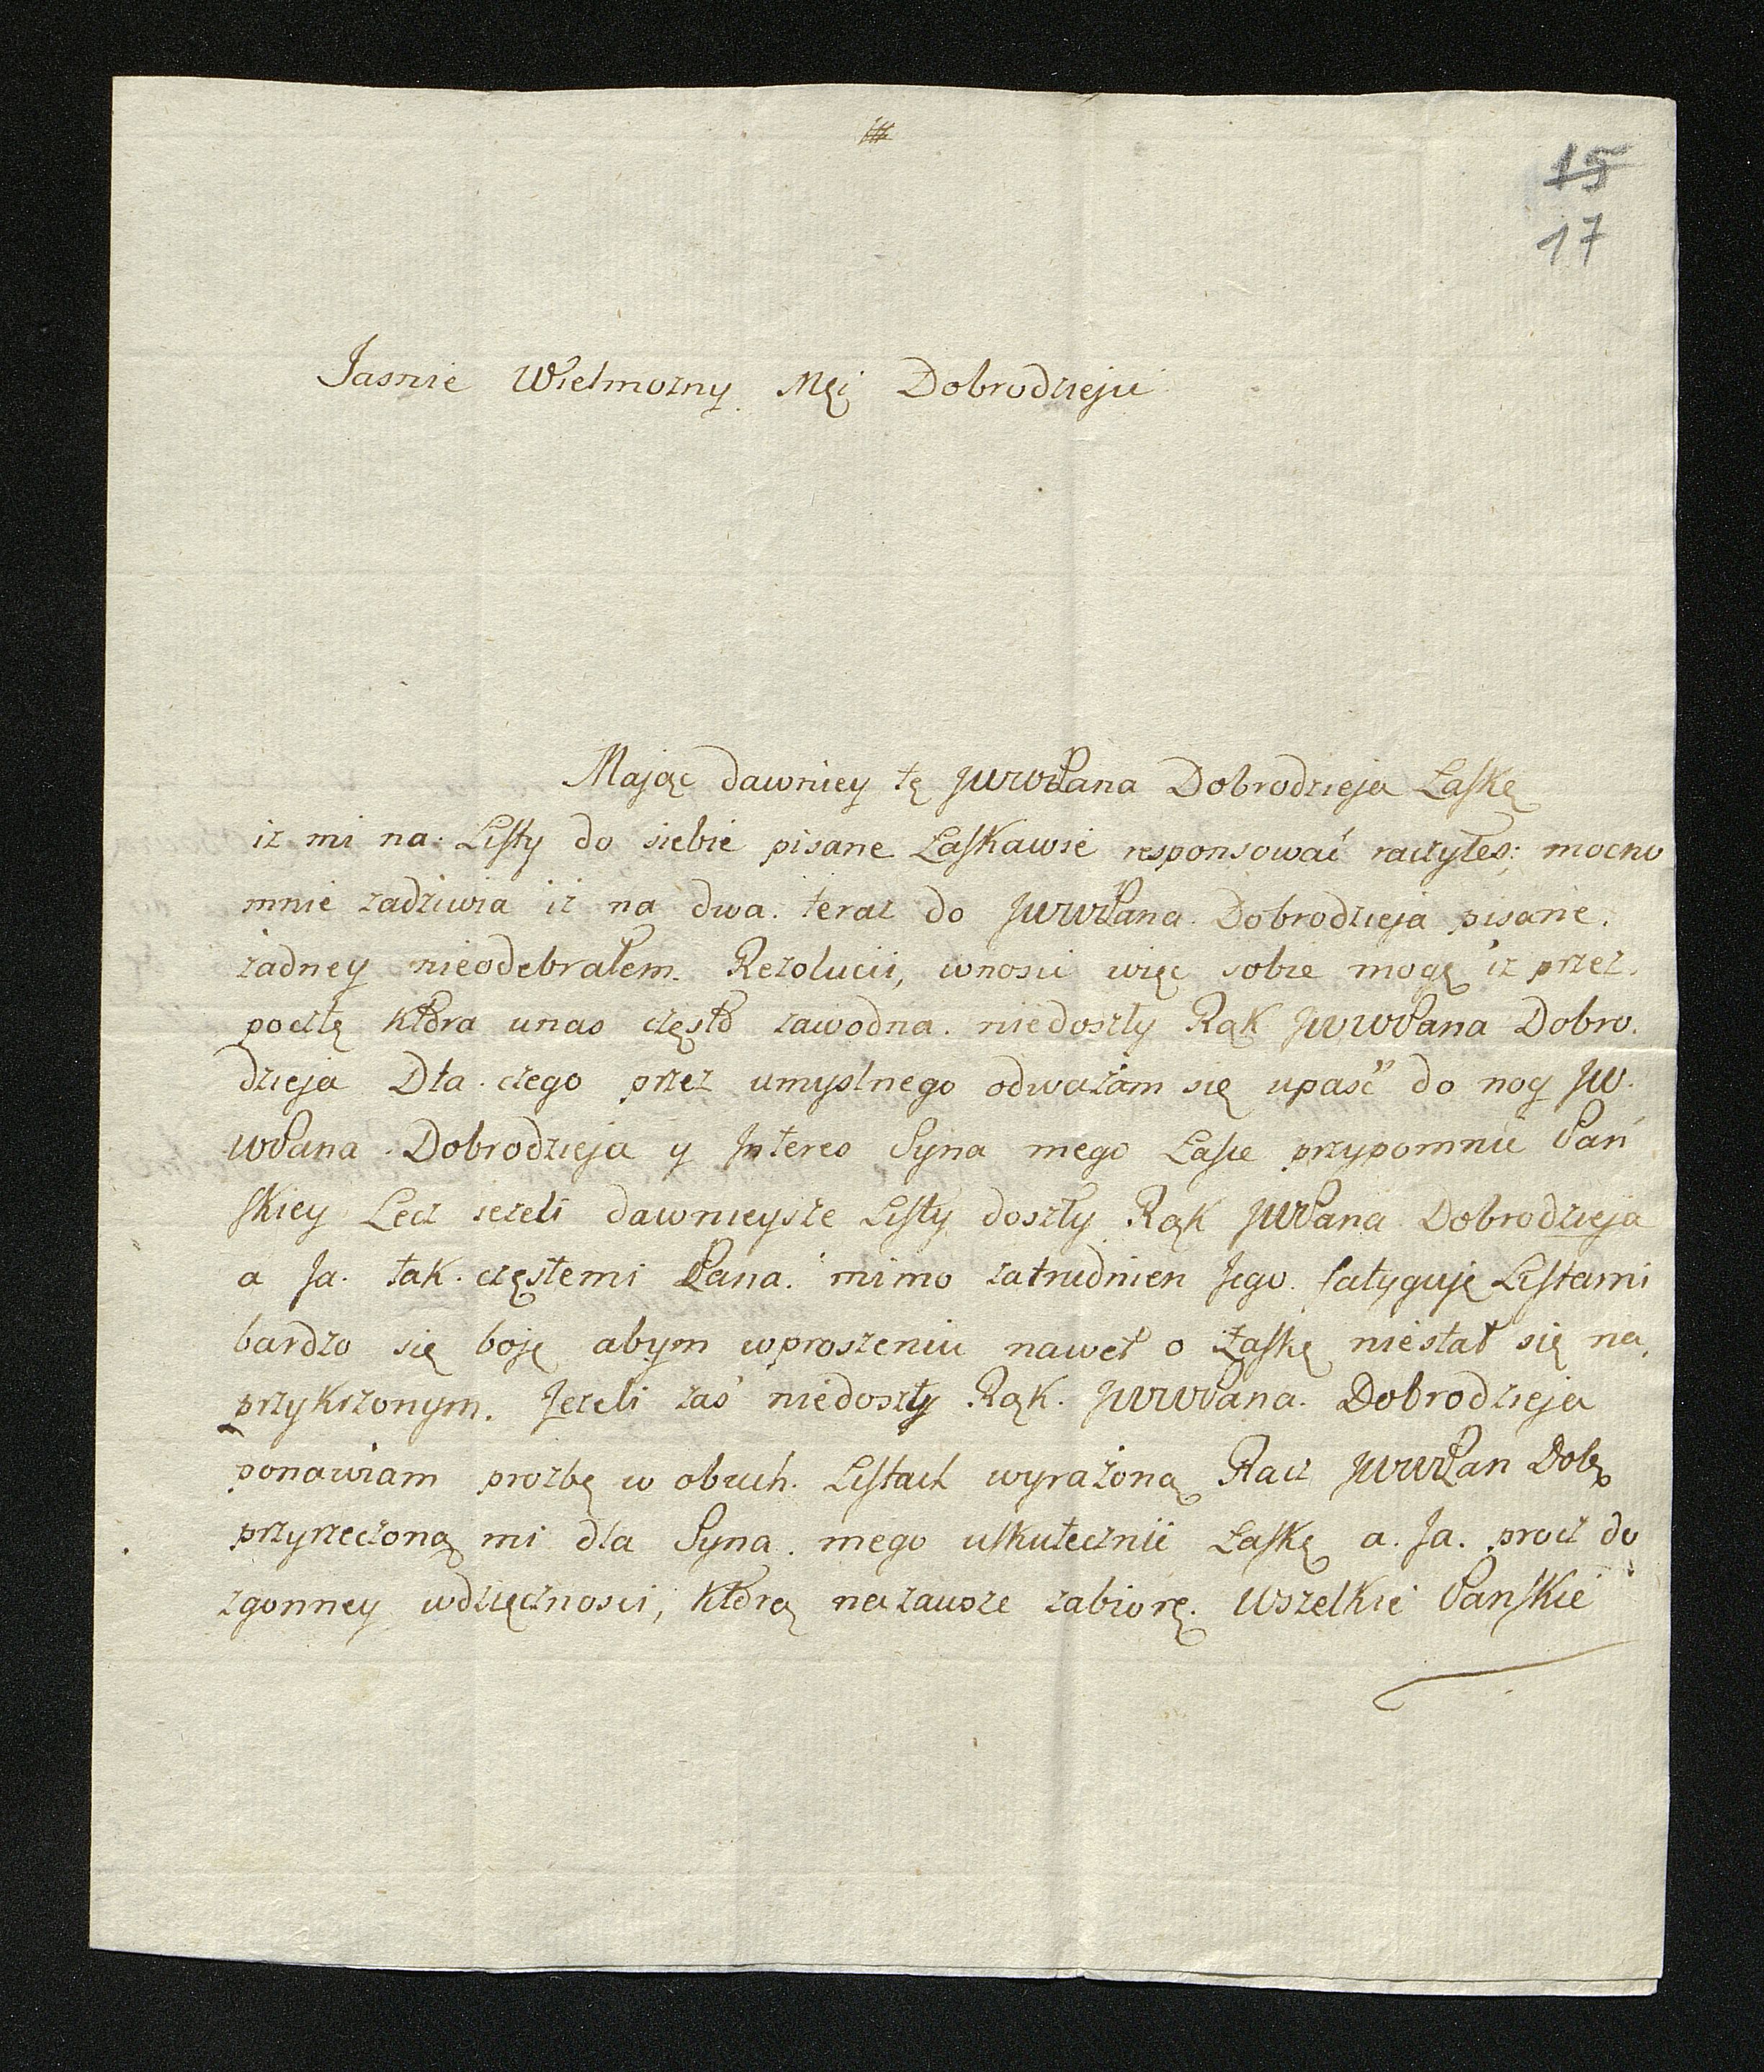 15
17
Jasnie Wielmozny Mći Dobrodzieju
Mając dawniey tę JWWPana Dobrodzieja Łaskę
iz mi na Listy do siebie pisane Łaskawie responsować raczyłes; mocno
mnie zadziwia iz na dwa teraz do JWWPana Dobrodzieja pisane.
żadney nieodebrałem Rezolucii, wnosić więc sobie mogę iz przez
pocztę która unas często zawodna. niedoszły Rąk JWWPana Dobro.
dzieja Dla czego przez umyslnego odważam się upaść do nog JW.
WPana Dobrodzieja y Interes Syna mego Łasce przypomnić Pań
skiey Lecz jezeli dawnieysze Listy doszły Rąk JWPana Dobrodzieja
a Ja. tak częstemi Pana. mimo zatrudnien Jego. fatyguję Listami
bardzo się boję abym wproszeniu nawet o Łaskę niestał się na,
przykrzonym. Jezeli zaś niedoszły Rąk. JWWPana. Dobrodzieja
ponawiam prozbę w obuch. Listach wyrażoną Racz JWWPan Dob
przyrzeczoną mi dla Syna. mego uskutecznić Łaskę a. Ja. procz do
zgonney wdzięcznosci, którą nazawsze zabiorę. Wszelkie Panskie